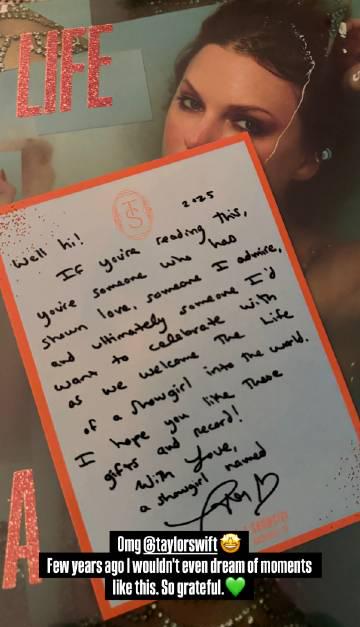 LIFE
TS
2025
Well hi!
If you're reading this,
you're someone who has
shown love, someone I admire,
and ultimately someone I'd
want to celebrate with
as we welcome The Life
of a Showgirl into the world.
I hope you like these
gifts and record!
With Love,
a showgirl named
Taylor
A
Omg @taylorswift 🤩
Few years ago I wouldn't even dream of moments
like this. So grateful. 💚